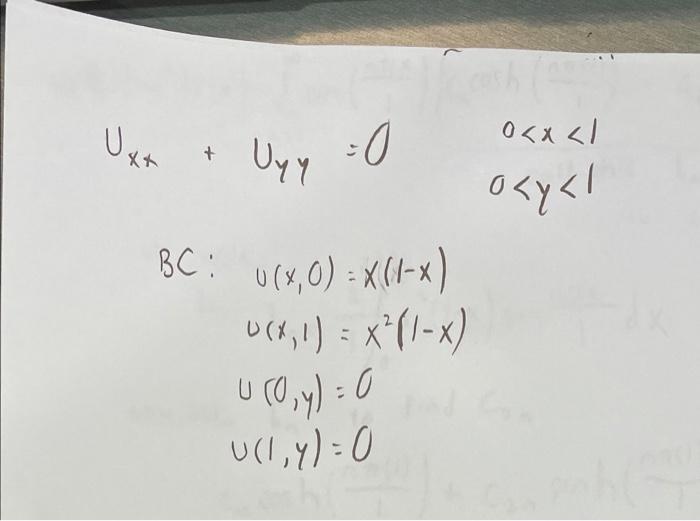 Uxx + Uyy = 0 0<x<1
0<y<1
BC: U(x,0) = x(1-x)
U(x,1) = x²(1-x)
U(0,y) = 0
U(1,y) = 0